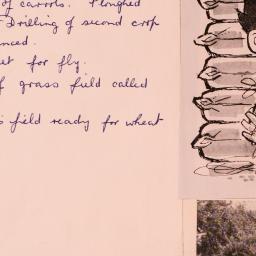 of carrots. Ploughed
Drilling of second crop
for fly.
grass field called
field ready for wheat